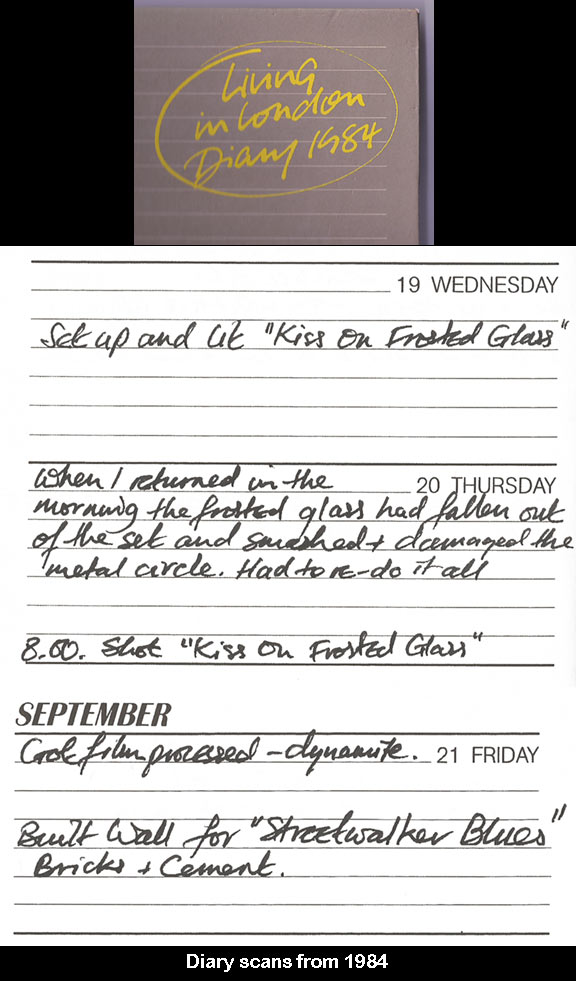 Living
in London
Diary 1984
19 WEDNESDAY
Set up and lit "Kiss on Frosted Glass"
When I returned in the
20 THURSDAY
morning the frosted glass had fallen out
of the set and smashed + damaged the
metal circle. Had to re-do it all
8.00. Shot "Kiss on Frosted Glass"
SEPTEMBER
Got film processed – dynamite.
21 FRIDAY
Built Wall for "Streetwalker Blues"
Bricks + Cement.
Diary scans from 1984